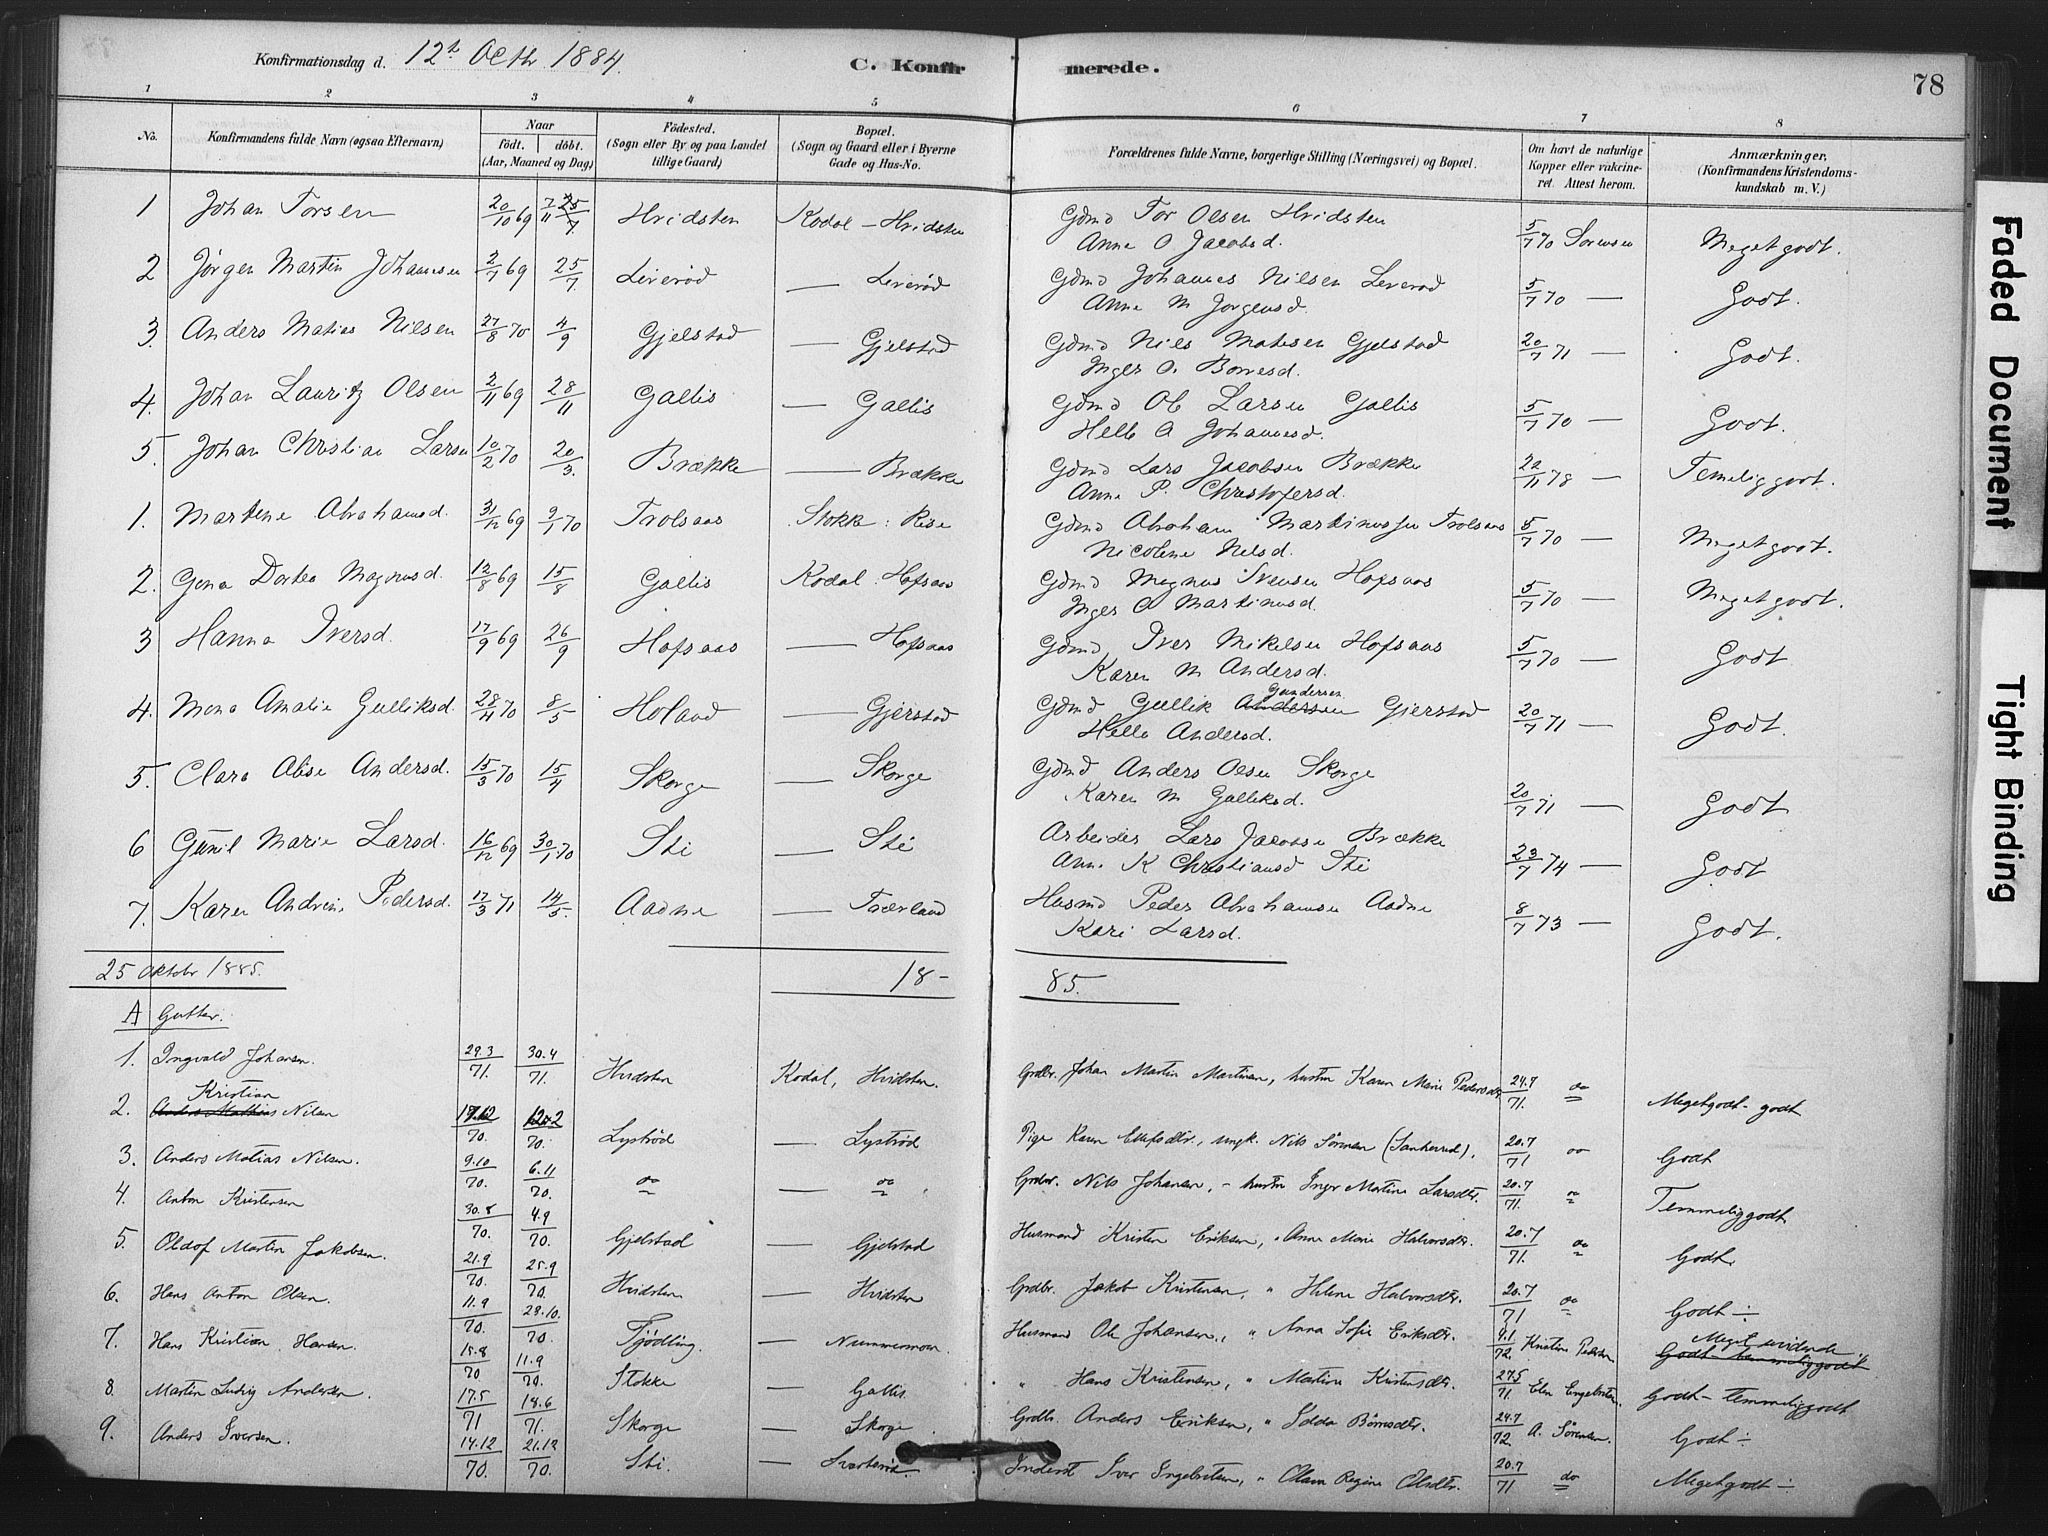 Konfirmationsdag d. 12t Octbr 1884.
C. Konfirmerede.
78
1 2 3 4 5 6 7 8
No.
Konfirmandens fulde Navn (ogsaa Efternavn)
Naar födt. döbt. (Aar, Maaned og Dag)
Födested. (Sogn eller By og paa Landet tillige Gaard)
Bopæl. (Sogn og Gaard eller i Byerne Gade og Hus-No.
Forældrenes fulde Navne, borgerlige Stilling (Næringsvei) og Bopæl.
Om havt de naturlige Kopper eller vakcineret. Attest herom.
Anmærkninger. (Konfirmandens Kristendomskundskab m. V.)
1 Johan Torsen 20/10 69 7/11 Hvidsten Kodal - Hvidsten Gdmd Tor Olsen Hvidsten 5/7 70 Sørensen Meget godt.
Anne O Jacobsd.
2 Jørgen Martin Johannesen 2/7 69 25/7. Liverød — Liverød Gdmd Johannes Nilsen Leverød 5/7 70 — Godt.
Anne M Jørgensd.
3. Anders Matias Nilsen 27/8 70 4/9 Gjelstad — Gjelstad Gdmd Nils Matisen Gjelstad 20/7 71 — Godt.
Inger A. Borresd.
4. Johan Lauritz Olsen 2/11 69 28/11 Gallis — Gallis Gdmd Ol Larsen Gallis 5/7 70 — Godt.
Helle A Johannesd.
5. Johan Christian Larsen 10/2 70 20/3. Brække — Brække Gdmd Lars Jacobsen Brække 22/11 78 — Temelig godt.
Anne P. Christofersd.
1. Martine Abrahamsd. 31/12 69 9/1 70 Trolsaas Stokke: Rise Gdmd Abraham Martinussen Trolsaas 5/7 70 — Meget godt.
Nicoline Nilsd.
2. Gina Dortea Magnusd. 12/8 69 15/8 Gallis Kodal: Hofsaas Gdmd Magnus Svensen Hofsaas 5/7 70 — Meget godt.
Inger A Martinusd.
3 Hanna Iversd. 17/9 69 26/9 Hofsaas — Hofsaas Gdmd Iver Mikelsen Hofsaas 5/7 70 — Godt
Karen M Andersd.
4. Mena Amalie Gulliksd. 28/4 70 8/5 Holand — Gjerstad Gdmd Gullik Andersen Gundersen Gjerstad 20/7 71 — Godt.
Helle Andersd.
5. Clara Alise Andersd. 15/3 70 15/4 Skorge — Skorge Gdmd Anders Olsen Skorge 20/7 71 — Godt
Karen M Gulliksd.
6 Gunil Marie Larsd. 16/12 69 30/1 70 Sti — Sti Arbeider Lars Jacobsen Brække 23/7 74 — Godt
Anne K Christiansd Sti
7. Karen Andrine Pedersd. 12/3 71 14/5. Aadne — Taerland Husmd Peder Abrahamsen Aadne 8/7 73 — Godt.
Kari Larsd.
25 Oktobr 1885. 18- 85.
A Gutter.
1. Ingvald Johansen. 29.3/71. 30.4/71. Hvidsten Kodal, Hvidsten. Grdbr. Johan Martin Martinsen, hustru Karen Marie Pedersdtr 24.7/71. do Megetgodt - godt
2. Anders Mathias Kristian Nilsen 17.12/70. 70. Lystrød — Lystrød Pige Karen Ellefsdtr., ungk. Nils Sörensen (Sankerød). 20.7/71 do Godt
3. Anders Matias Nilsen. 9.10/70. 6.11/70. do — do Grdbr. Nils Johansen, - hustru Inger Martine Larsdtr. 20.7/71. do Temmeliggodt
4. Anton Kristensen 30.8/70. 4.9/70. Gjelstad — Gjelstad Husmand Kristen Eriksen, " Anne Marie Halvorsdtr. 20.7/71. do Godt
5. Oldof Martin Jakobsen. 21.9/70. 25.9/70. Hvidsten — Hvidsten Grdbr. Jakob Kristensen, " Helene Halvorsdtr. 20.7/71 do Godt ÷
6. Hans Anton Olsen. 11.9/70. 23.10/70. Tjödling. — Nummermoen. Husmand Ole Johansen, " Anna Sofie Eriksdtr. 9.1/72. Kristen Pedersen Meget svidende Godt - temmeliggodt
7. Hans Kristian Hansen. 15.8/70 11.9/70. Stokke — Gallis. " Hans Kristensen, " Martine Kristensdtr. 27.5/71. Elen Engebretsen. Godt - temmeliggodt
8. Martin Ludvig Andersen. 17.5/71 18.6/71. Skorge — Skorge. Grdbr. Anders Eriksen, " Idda Börresdtr. 24.7/72. A. Sörensen. Godt ÷
9. Anders Iversen. 14.12/70. 21.12/70. Sti. — Svarterød Inderst Iver Ingebretsen, " Oliane Regine Olsdtr. 20.7/71 do Megetgodt ÷
Faded Document
Tight Binding